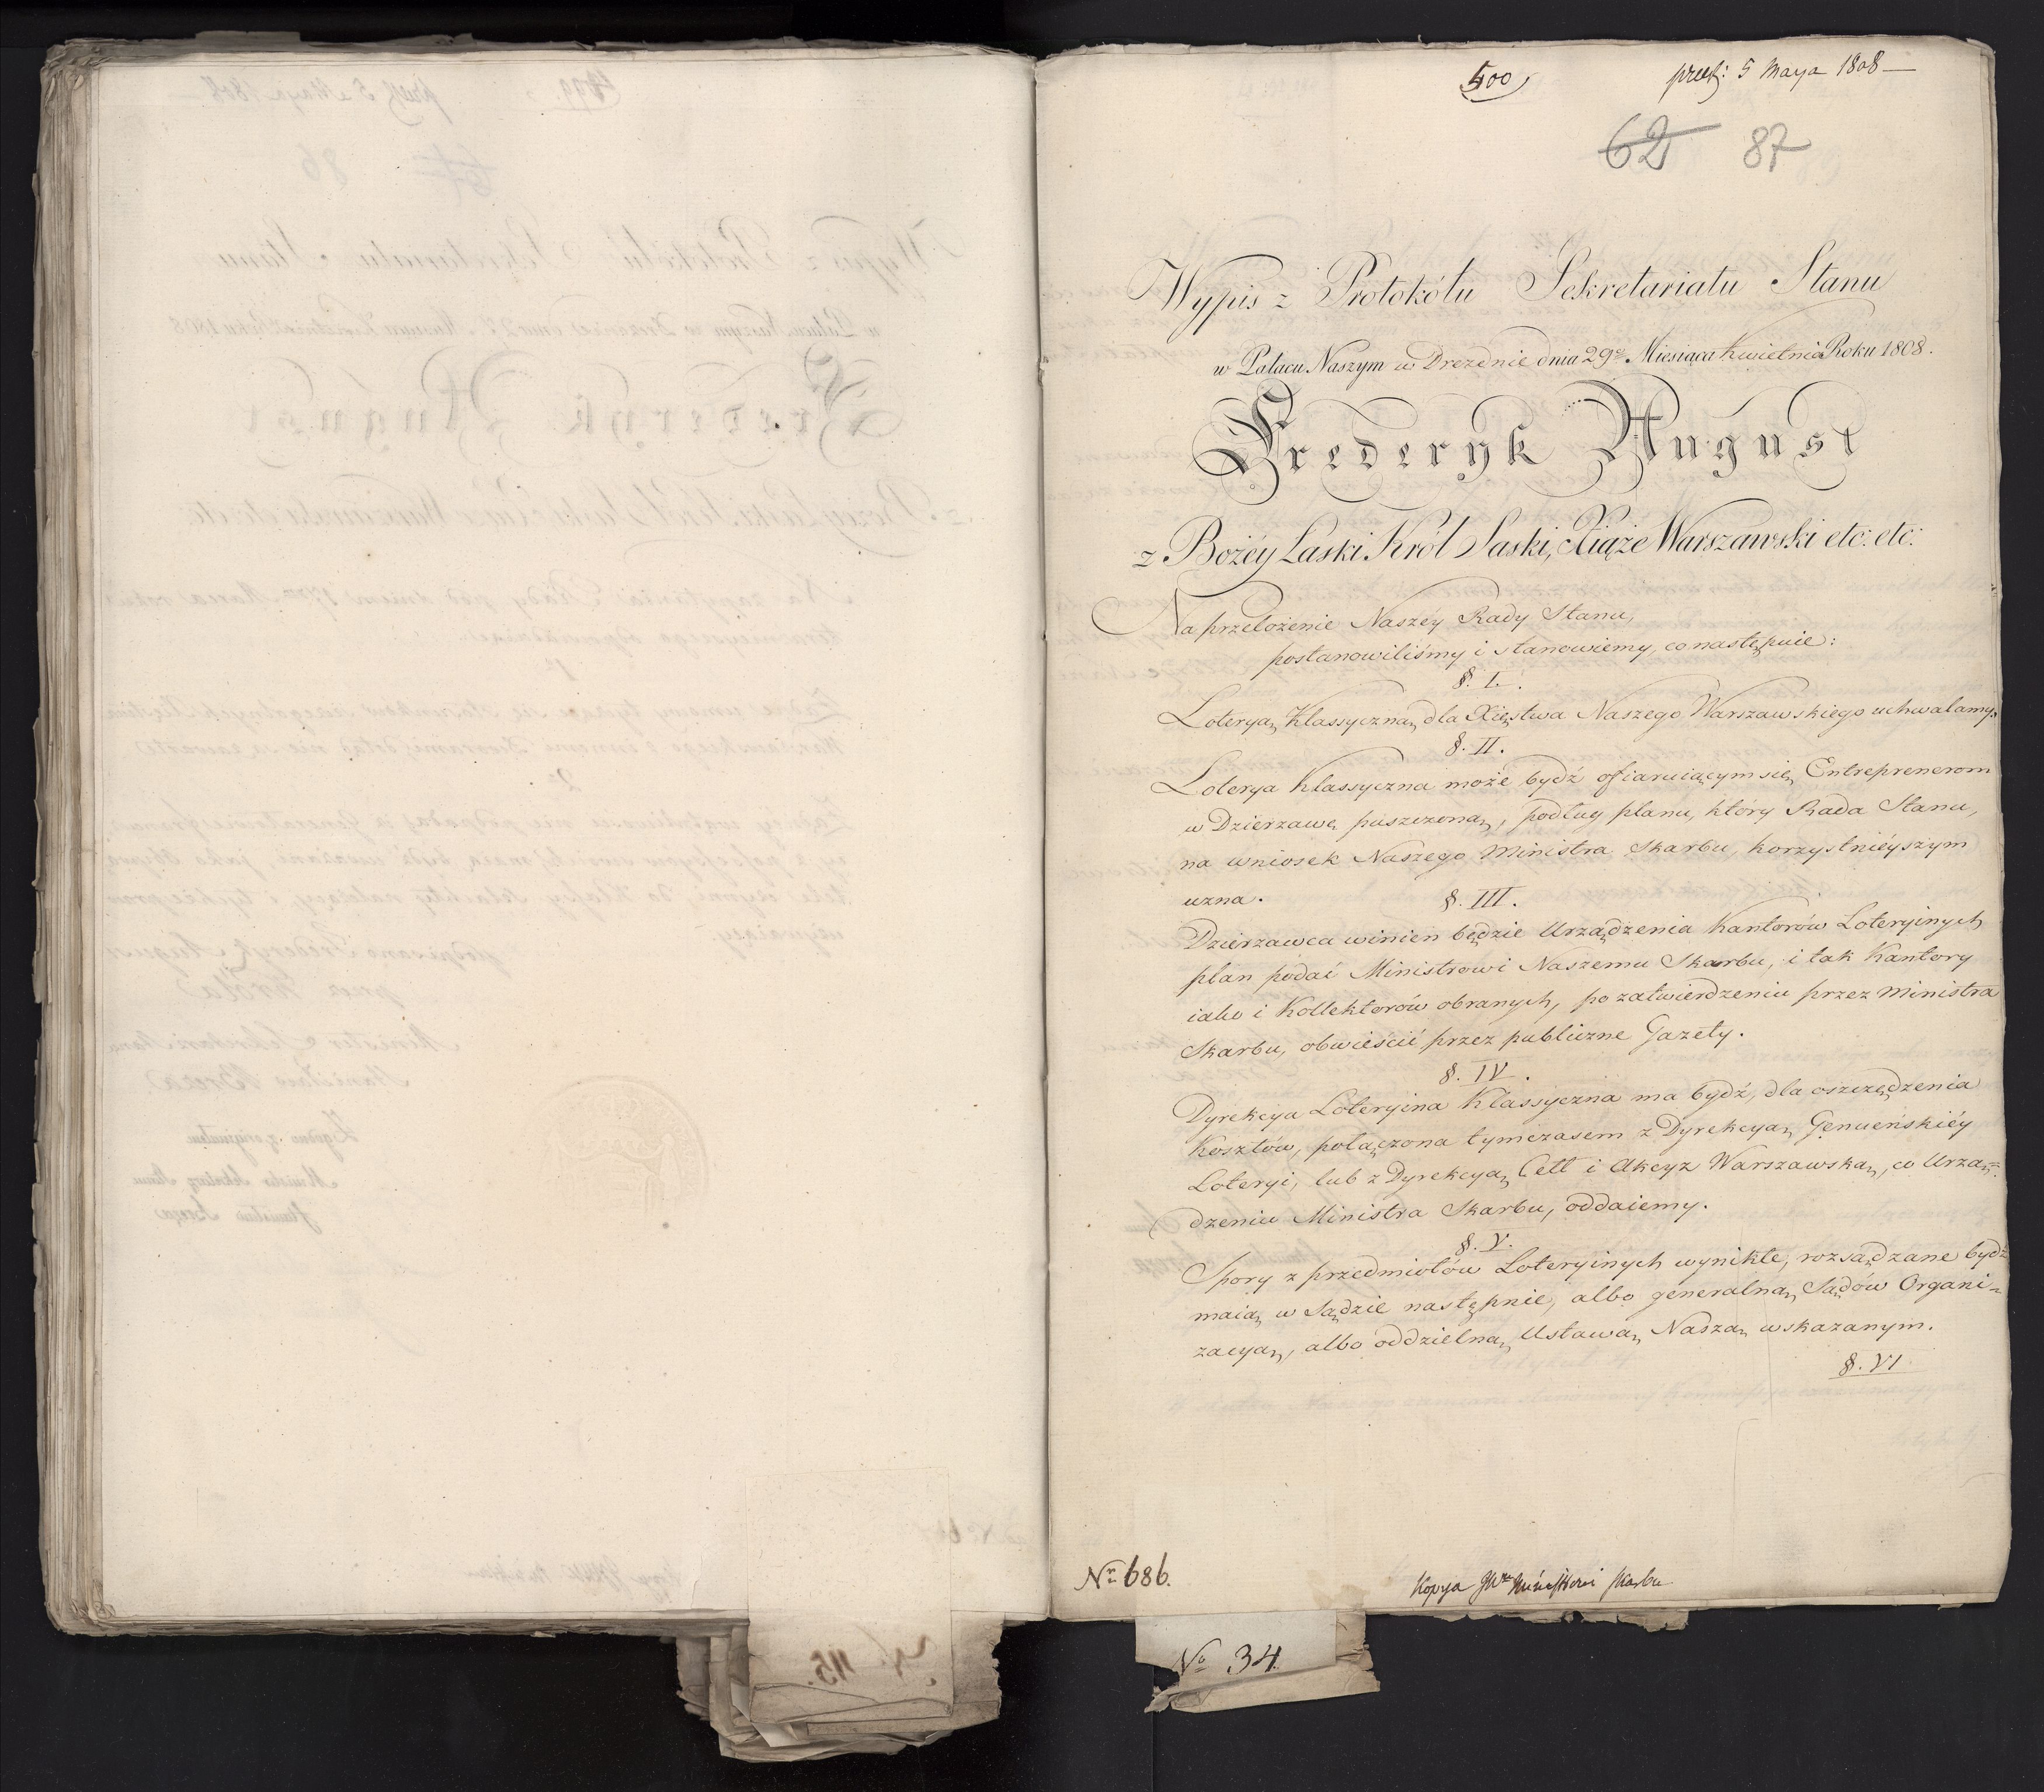 500
pręs: 5 Maya 1808 —
62 87
Wypis z Protokółu Sekretariatu Stanu
w Pałacu Naszym w Dreznie dnia 29go Miesiąca Kwietnia Roku 1808.
Frederyk August
z Bożéy Łaski Król Saski, Xiąże Warszawski etc: etc:
Na przełożenie Naszéy Rady Stanu,
postanowiliśmy i stanowiemy, co następuie:
§. I.
Loteryą Klassyczną dla Xięstwa Naszego Warszawskiego uchwalamy.
§. II.
Loterya Klassyczna może bydź ofiaruiącym się Entreprenerom
w Dzierzawę puszczoną, podług planu, który Rada Stanu,
na wniosek Naszego Ministra Skarbu, korzystnieyszym
uzna.
§. III.
Dzierzawca winien będzie Urządzenia Kantorów Loteryinych
plan podać Ministrowi Naszemu Skarbu, i tak Kantory
iako i Kollektorów obranych, po zatwierdzeniu przez Ministra
Skarbu, obwieścić przez publiczne Gazety.
§. IV.
Dyrekcya Loteryina Klassyczna ma bydź, dla oszczędzenia
Kosztów, połączona tymczasem z Dyrekcyą Genueńskiéy
Loteryi, lub z Dyrekcyą Cell i Akcyz Warszawską, co Urzą=
dzeniu Ministra Skarbu, oddaiemy.
§. V.
Spory z przedmiotów Loteryinych wynikłe, rozsądzane bydź
maią w Sądzie następnie, albo generalną Sądów Organi=
zacyą, albo oddzielną Ustawą Naszą wskazanym.
§. VI
Nr 686.
Kopya JWu Ministrowi Skarbu
No 34.